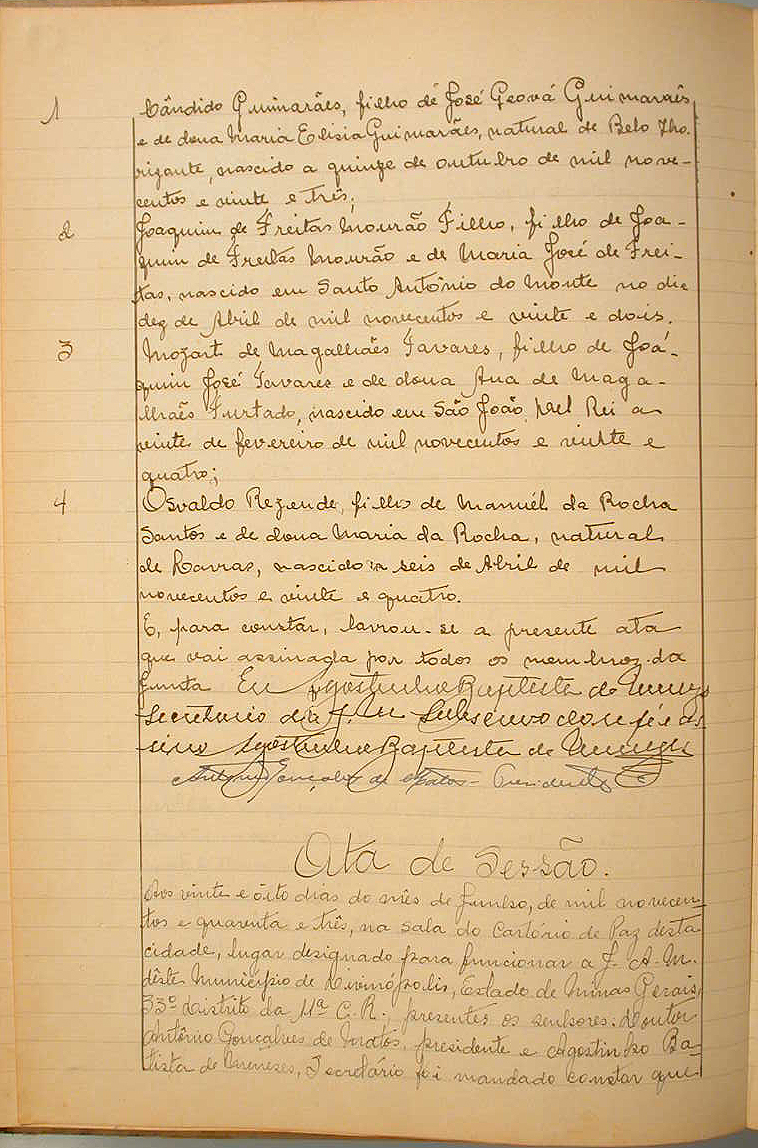 1 Cândido Guimarães, filho de José Geová Guimarães
e de dona Maria Elisia Guimarães, natural de Belo Ho-
rizonte, nascido a quinze de outubro de mil nove-
centos e vinte e três;
2 Joaquim de Freitas Mourão Filho, filho de Joa-
quim de Freitas Mourão e de Maria José de Frei-
tas, nascido em Santo Antônio do Monte no dia
dez de Abril de mil novecentos e vinte e dois.
3 Mozart de Magalhães Tavares, filho de Joá-
quim José Tavares e de dona Ana de Maga-
lhães Furtado, nascido em São João Del Rei a
vinte de fevereiro de mil novecentos e vinte e
quatro;
4 Osvaldo Rezende, filho de Manuél da Rocha
Santos e de dona Maria da Rocha, natural
de Lavras, nascido a seis de Abril de mil
novecentos e vinte e quatro.
E, para constar, lavrou-se a presente ata
que vai assinada por todos os membroz da
Junta Eu Agostinho Baptista de Menezes
Secretario da J. M. Subscrevo dou fé e as-
sino Agostinho Baptista de Menezes
Antonio Gonçalves de Matos - Presidente
Ata de Sessão.
Aos vinte e ôito dias do mês de Junho, de mil novecen-
tos e quarenta e três, na sala do Cartório de Paz desta
cidade, lugar designado para funcionar a J. A. M.
dêste Município de Divinópolis, Estado de Minas Gerais,
33º Distrito da 11ª C. R., presentes os senhores. Doutor
Antônio Gonçalves de Matos, presidente e Agostinho Ba-
tista de Meneses, Secretário foi mandado constar que